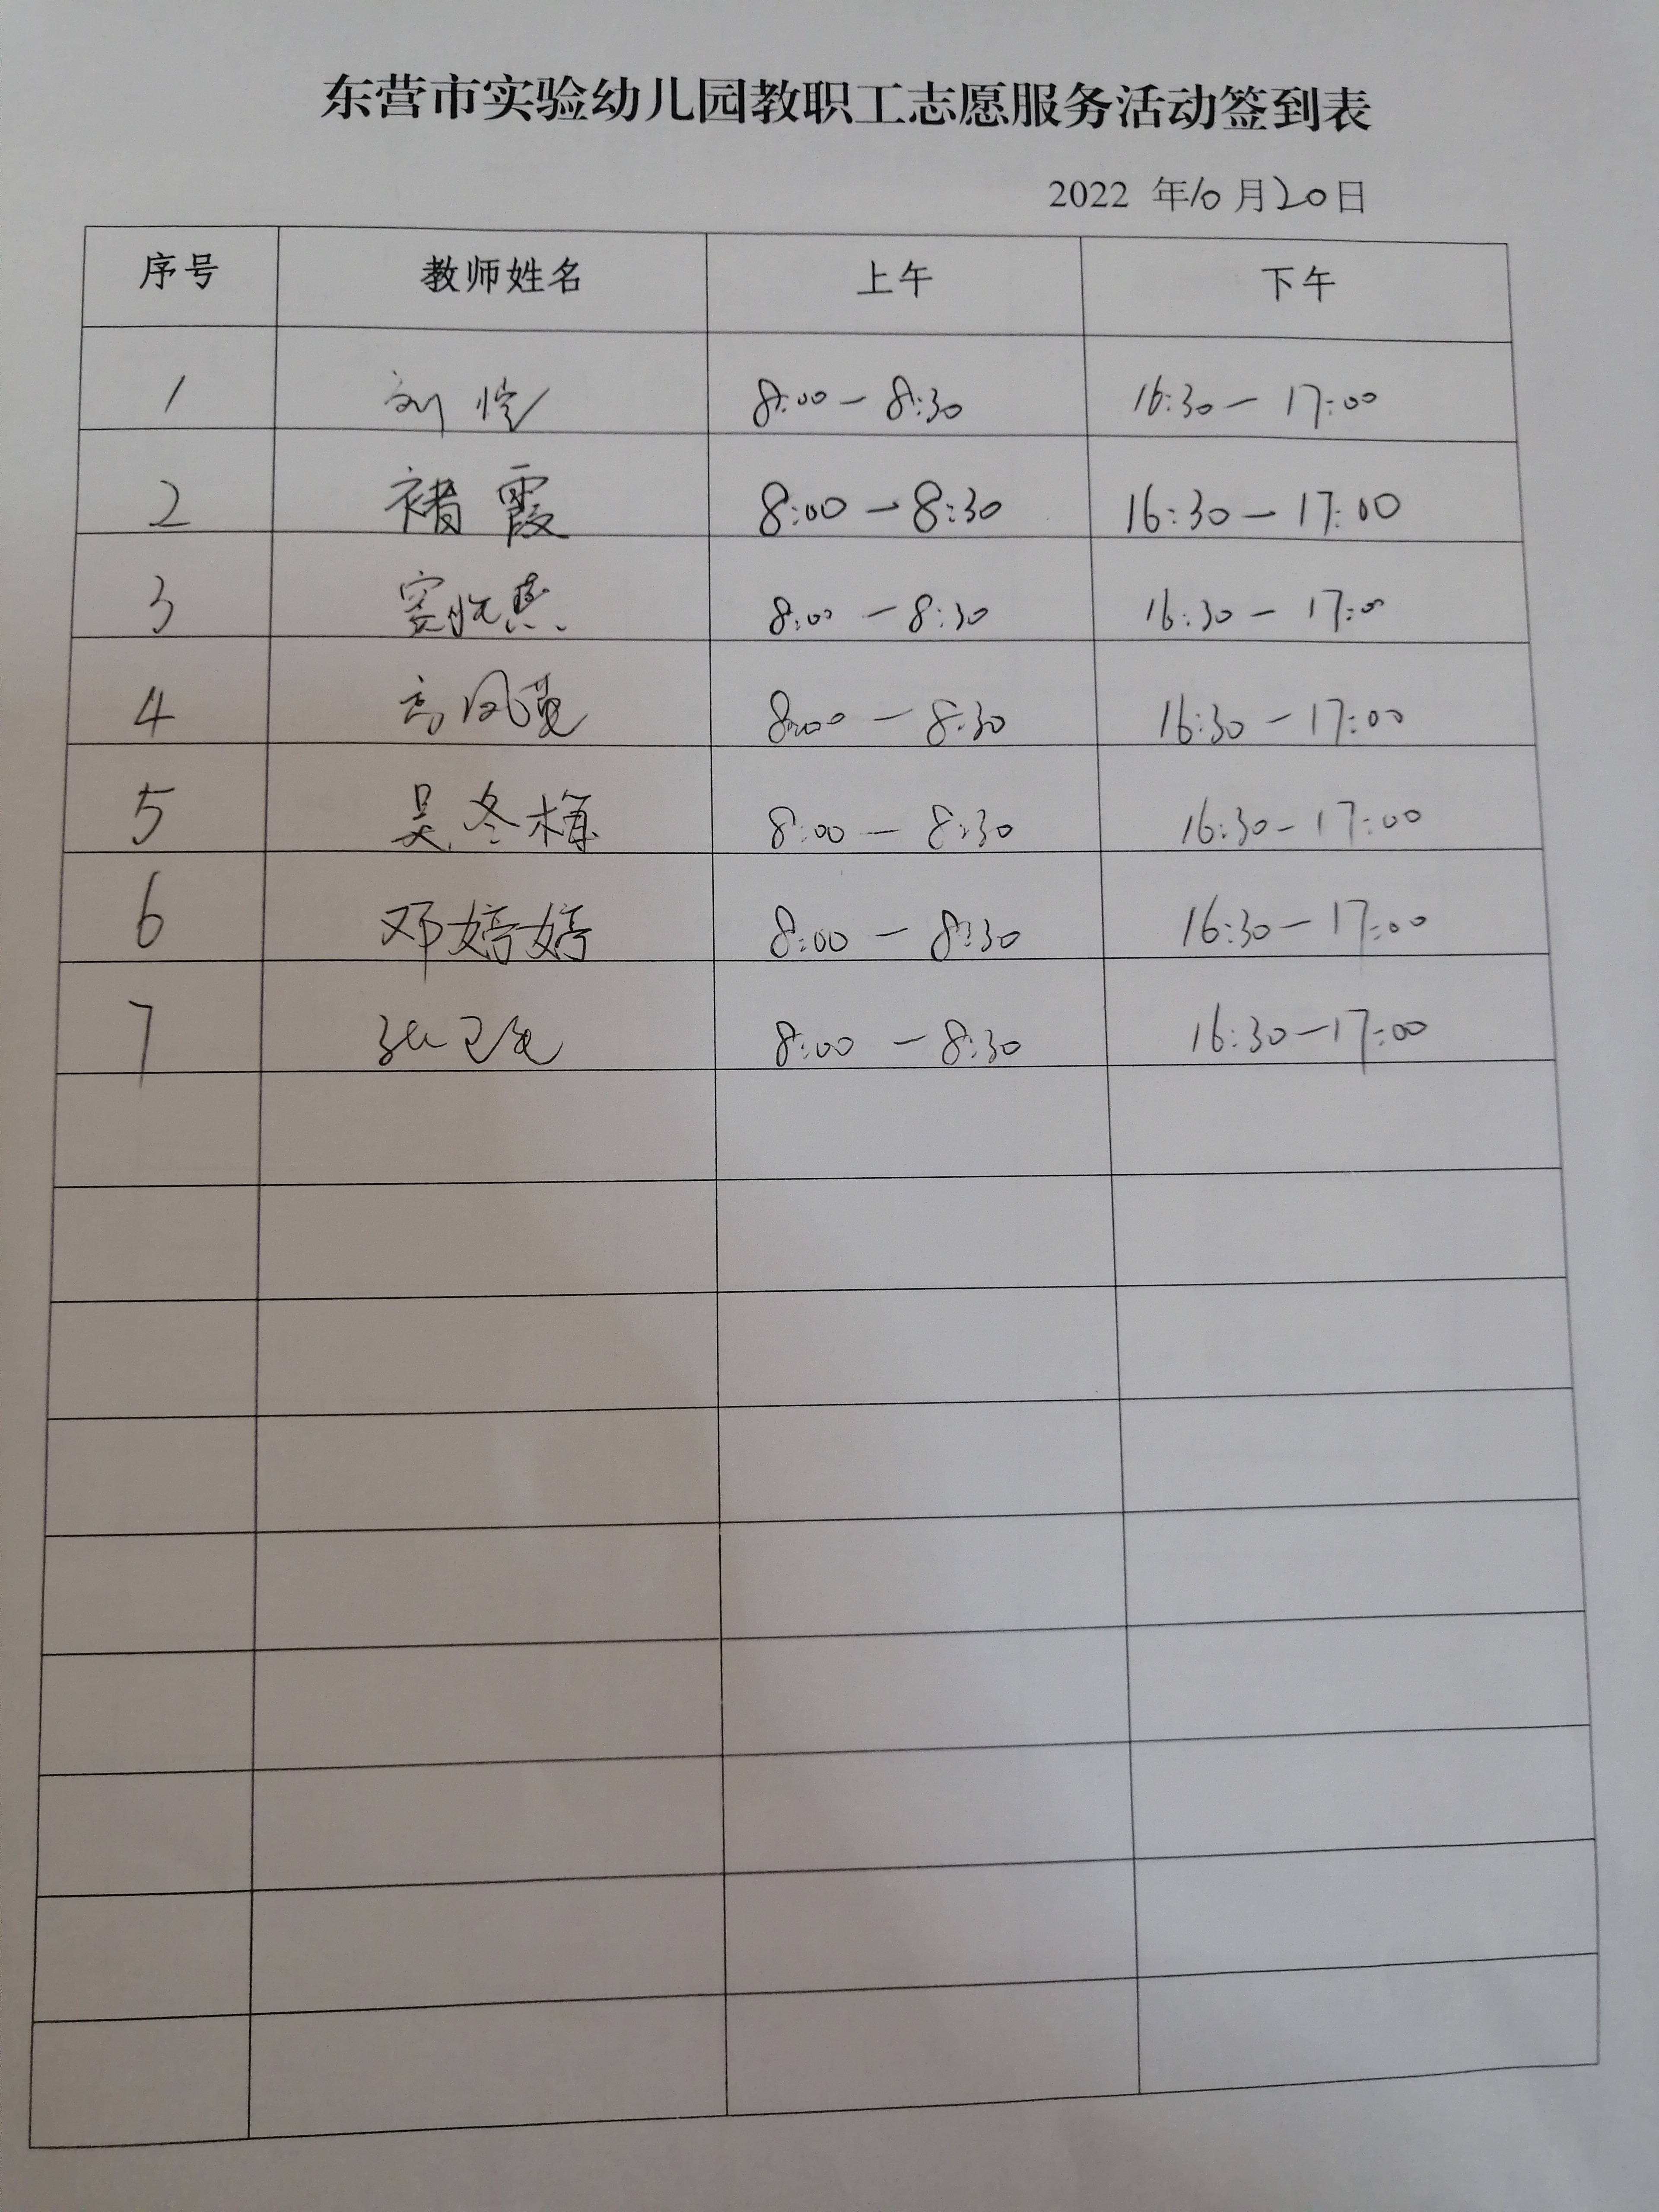 东营市实验幼儿园教职工志愿服务活动签到表
2022 年10月20日
序号 教师姓名 上午 下午
1 刘 8:00-8:30 16:30-17:00
2 褚霞 8:00-8:30 16:30-17:00
3 8:00-8:30 16:30-17:00
4 高凤英 8:00-8:30 16:30-17:00
5 吴冬梅 8:00-8:30 16:30-17:00
6 邓婷婷 8:00-8:30 16:30-17:00
7 张 8:00-8:30 16:30-17:00